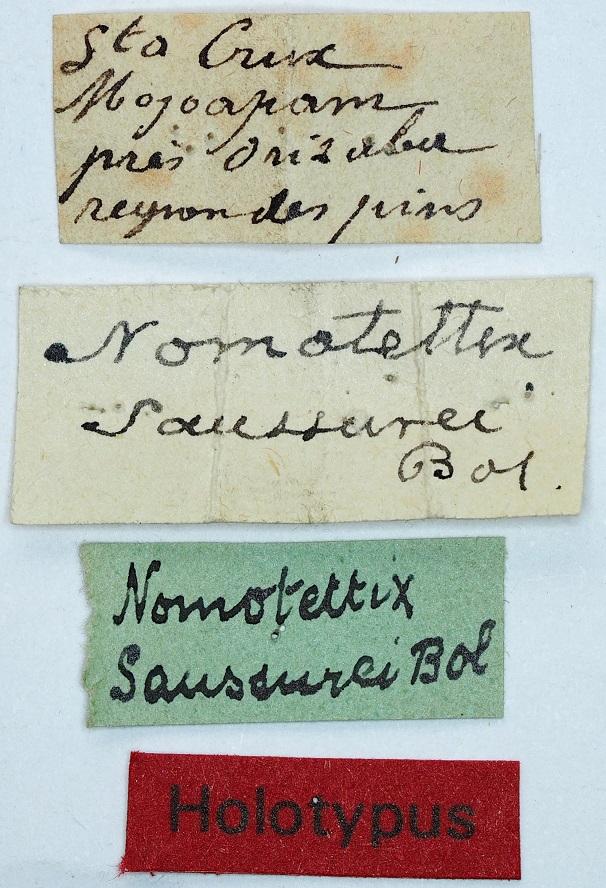 Sta Crux
Mojoapam
près Orizaba
reyion des pins
Nomotettix
Saussurei
Bol.
Nomotettix
Saussurei Bol
Holotypus